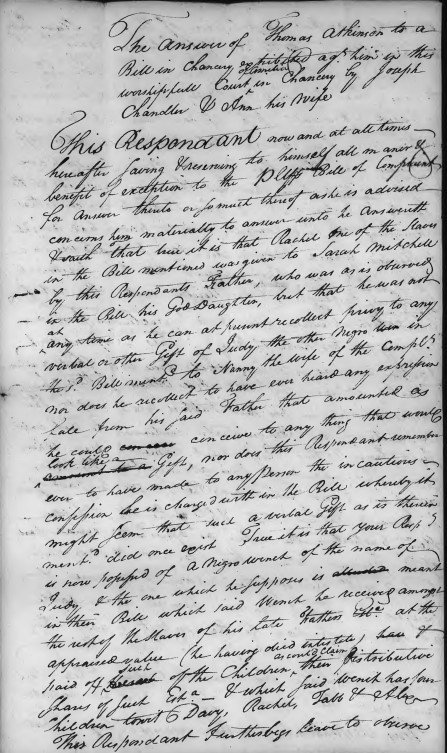 The Answer of Thomas Atkinson to a
Bill in Chancery exhibited agt. him in this
worshipfull Court in Chancery by Joseph
Chandler & Ann his Wife
This Respondant now and at all times
hereafter saving & reserving to himself all maner of
benefit of exception to the Pltfs Bill of Complaint
for Answer thereto or so much thereof as he is advised
concerns him materially to answer unto he Answereth
& saith that true it is that Rachel one of the Slaves
in the Bill mentioned was given to Sarah Mitchell
by this Respondants Father, who was as is observed
in the Bill his God Daughter, but that he was not
at any time as he can at present recollect privy to any
verbal or other Gift of Judy the other Negro in
the sd. Bill mentd. to Nanny the wife of the Complt.
nor does he recollect to have ever heard any expression
late from his said Father that amounted as
he could conceive to any thing that would
look like a Gift, nor does this Respondant remember
ever to have made to any Person the incautious
confession he is charged with in the Bill whereby it
might seem that such a verbal Gift as is therein
mentd. did once exist True it is that your Respt.
is now possessed of a Negro wench of the name of
Judy, & the one which he supposes is meant
in their Bill which said Wench he received amongst
the rest of the Slaves of his late Fathers at the
appraised value (he having died intestate) have &
said off such of the Children as could claim their Distributive
shares of such Esta. & which said Wench has four
Children towit Davy, Rachel, Tabb & Alex
This Respondant Further begs leave to observe